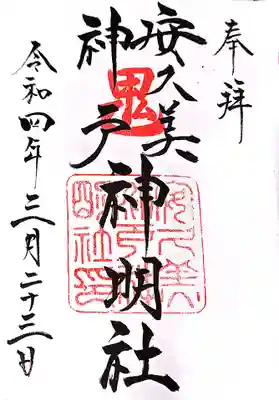 奉拝
安久美
神戸神明社
鬼
安久美
神戸神
明社印
令和四年三月二十三日